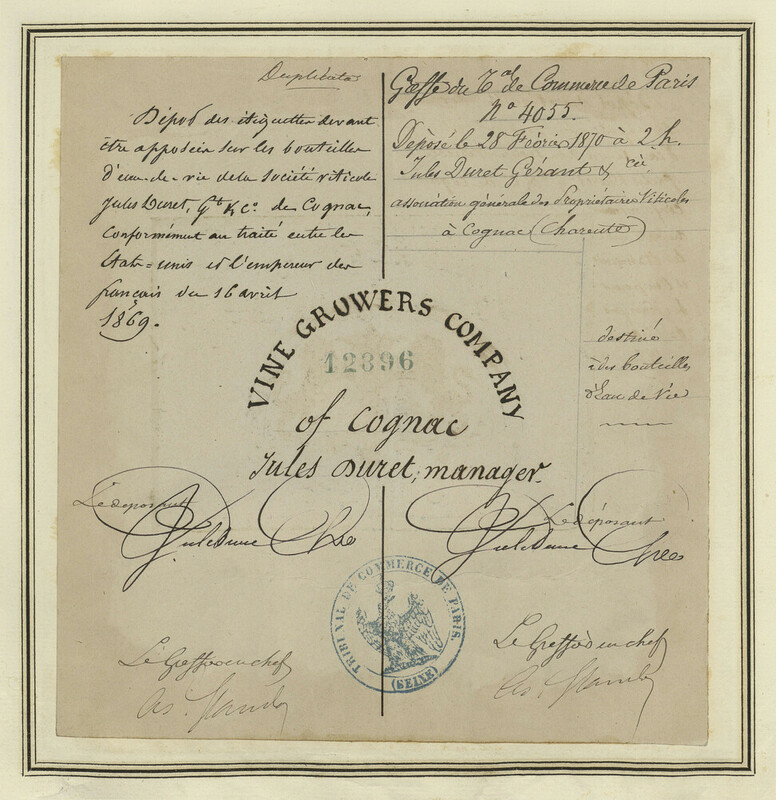 Duplicata
Dépot des étiquettes devant
être apposées sur les bouteilles
d'eau-de-vie de la Société viticole
Jules Duret, Gt & Co. de Cognac,
conformément au traité entre les
États-unis et l'empereur des
français du 16 avril
1869.
Greffe du Tal de Commerce de Paris
No 4055.
Déposé le 28 Février 1870 à 2 h.
Jules Duret Gérant & Cie
association générale des Propriétaires Viticoles
à Cognac (Charente)
destiné
à des bouteilles
d'Eau de Vie
VINE GROWERS COMPANY
12896
of Cognac
Jules Duret, manager.
Le déposant
Le déposant
TRIBUNAL DE COMMERCE DE PARIS.
(SEINE)
Le Greffier en chef
Le Greffier en chef